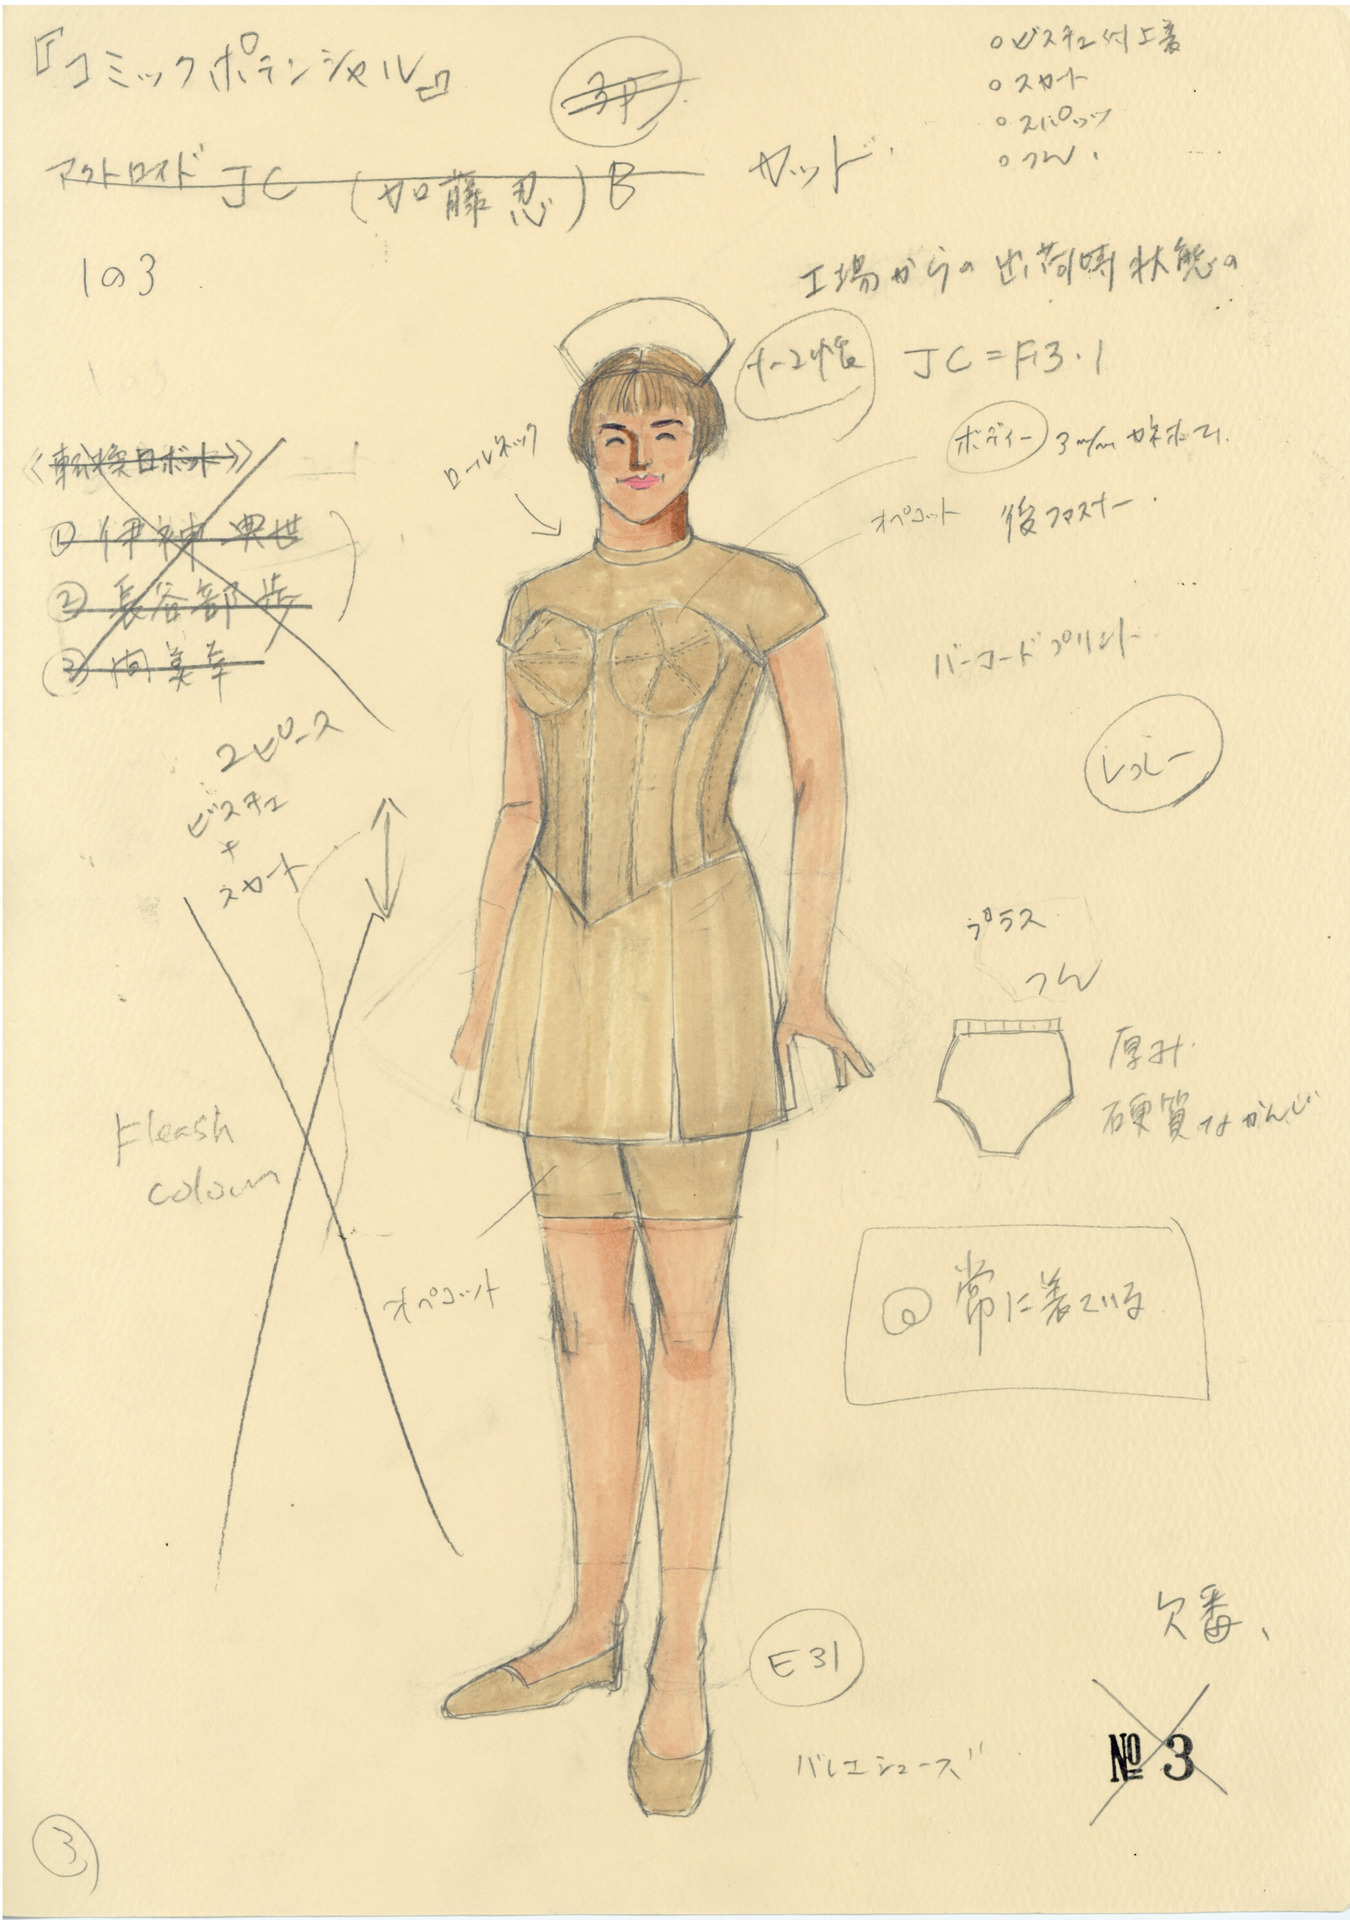 『コミックポテンシャル』
3P
ビスチェ付上着
スカート
スパッツ
アクトロイド JC (加藤忍) B
カット
1の3
工場からの出荷時状態の
JC=F3・1
ロールネック
ボディー
オペコット
後ファスナー
① 伊神 典世
② 長谷部 歩
③
バーコードプリント
2ピース
ビスチェ
+
スカート
プラス
厚み
硬質なかんじ
Fleash
colour
オペコット
◎ 常に着ている
欠番、
E31
バレエシューズ
№ 3
3